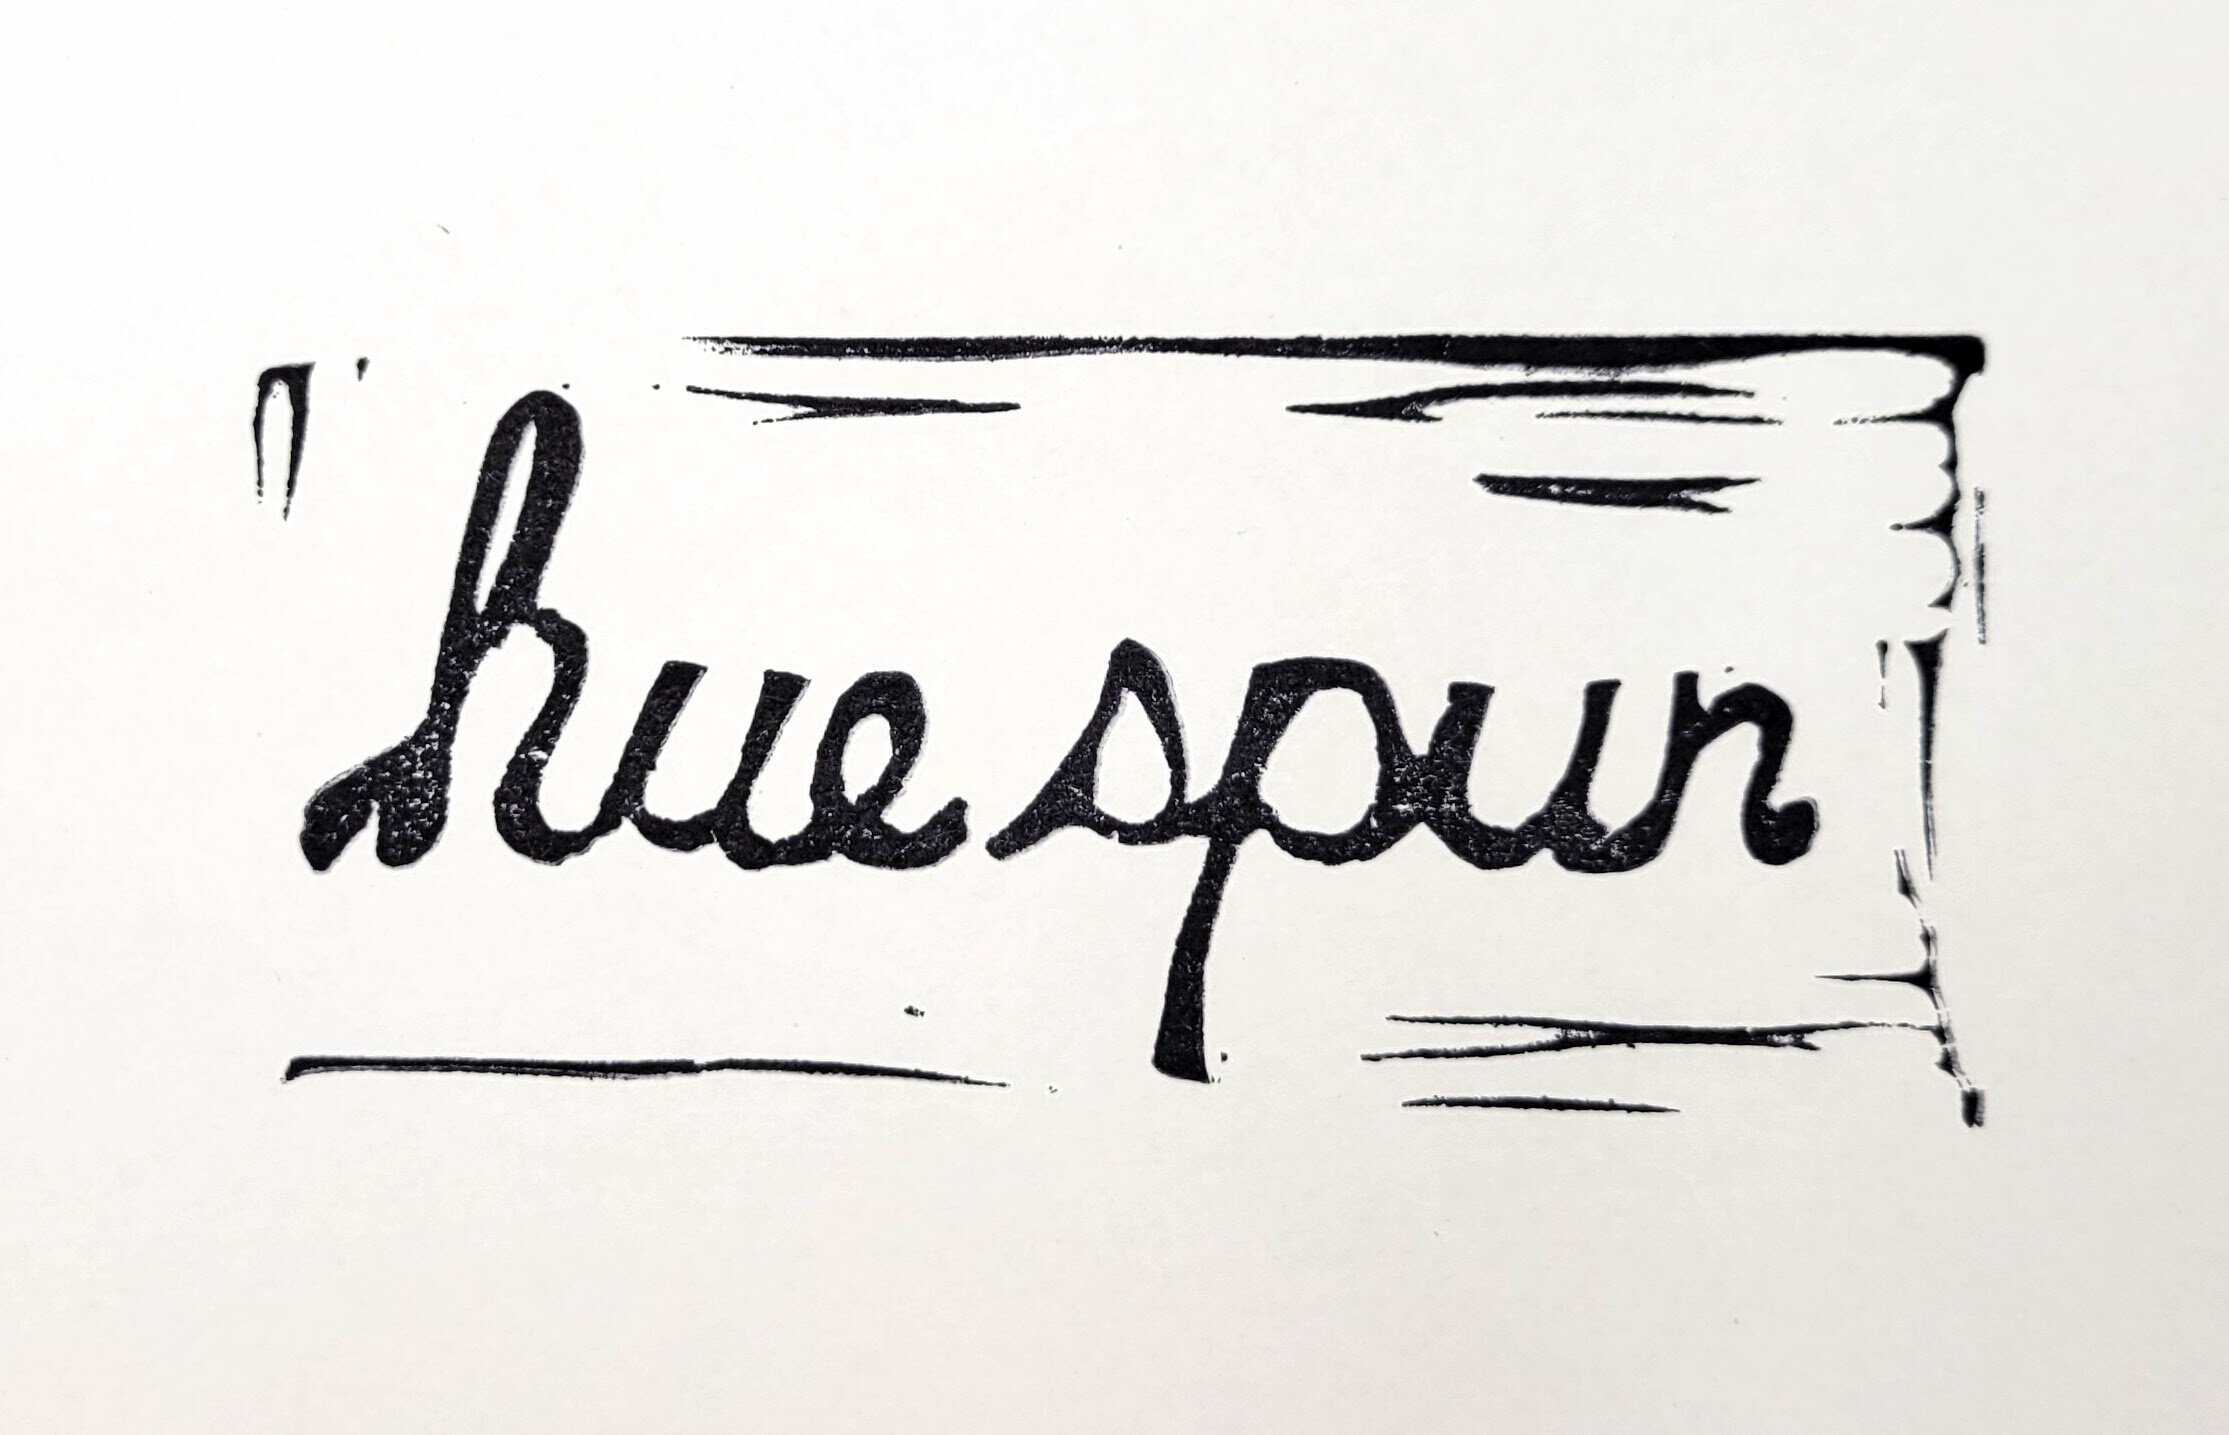 hue spun